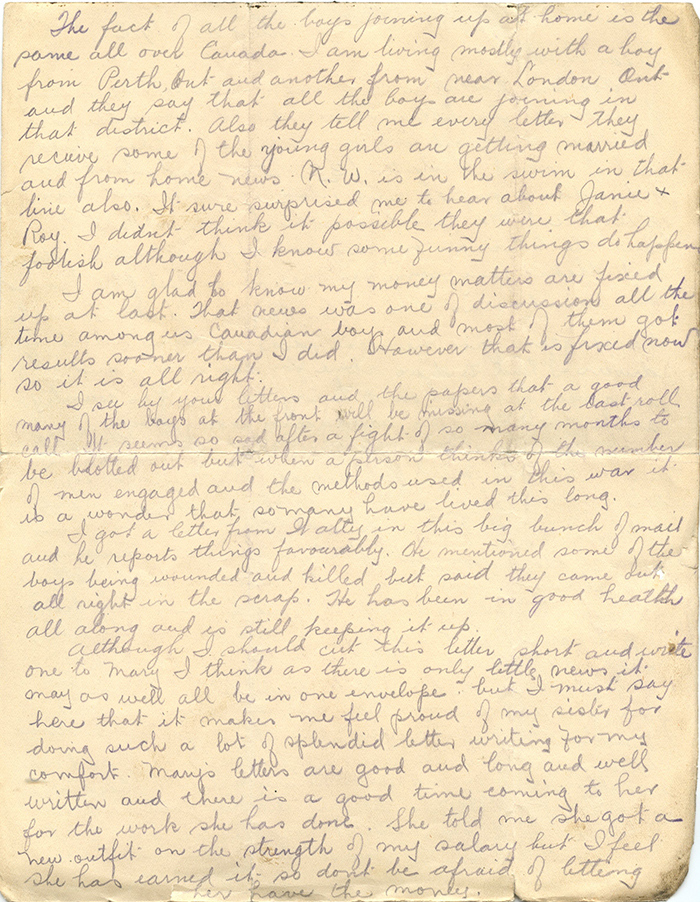 The fact of all the boys joining up at home is the
same all over Canada. I am living mostly with a boy
from Perth, Ont and another from near London Ont
and they say that all the boys are joining in
that district. Also they tell me every letter they
receive some of the young girls are getting married
and from home news N. W. is in the swim in that
line also. It sure surprised me to hear about Janie +
Roy. I didnt think it possible they were that
foolish although I know some funny things do happen
I am glad to know my money matters are fixed
up at last. That news was one of discussion all the
time among us Canadian boys and most of them got
results sooner than I did. However that is fixed now
so it is all right.
I see by your letters and the papers that a good
many of the boys at the front will be missing at the last roll
call. It seems so sad after a fight of so many months to
be blotted out but when a person thinks of the number
of men engaged and the methods used in this war it
is a wonder that so many have lived this long.
I got a letter from in this big bunch of mail
and he reports things favourably. He mentioned some of the
boys being wounded and killed, but said they came out
all right in the scrap. He has been in good health
all along and is still keeping it up.
Although I should cut this letter short and write
one to Mary I think as there is only little news it
may as well all be in one envelope. but I must say
here that it makes me feel proud of my sister for
doing such a lot of splendid letter writing for my
comfort. Marys letters are good and long and well
written and there is a good time coming to her
for the work she has done. She told me she got a
new outfit on the strength of my salary but I feel
she has earned it so dont be afraid of letting
her have the money.